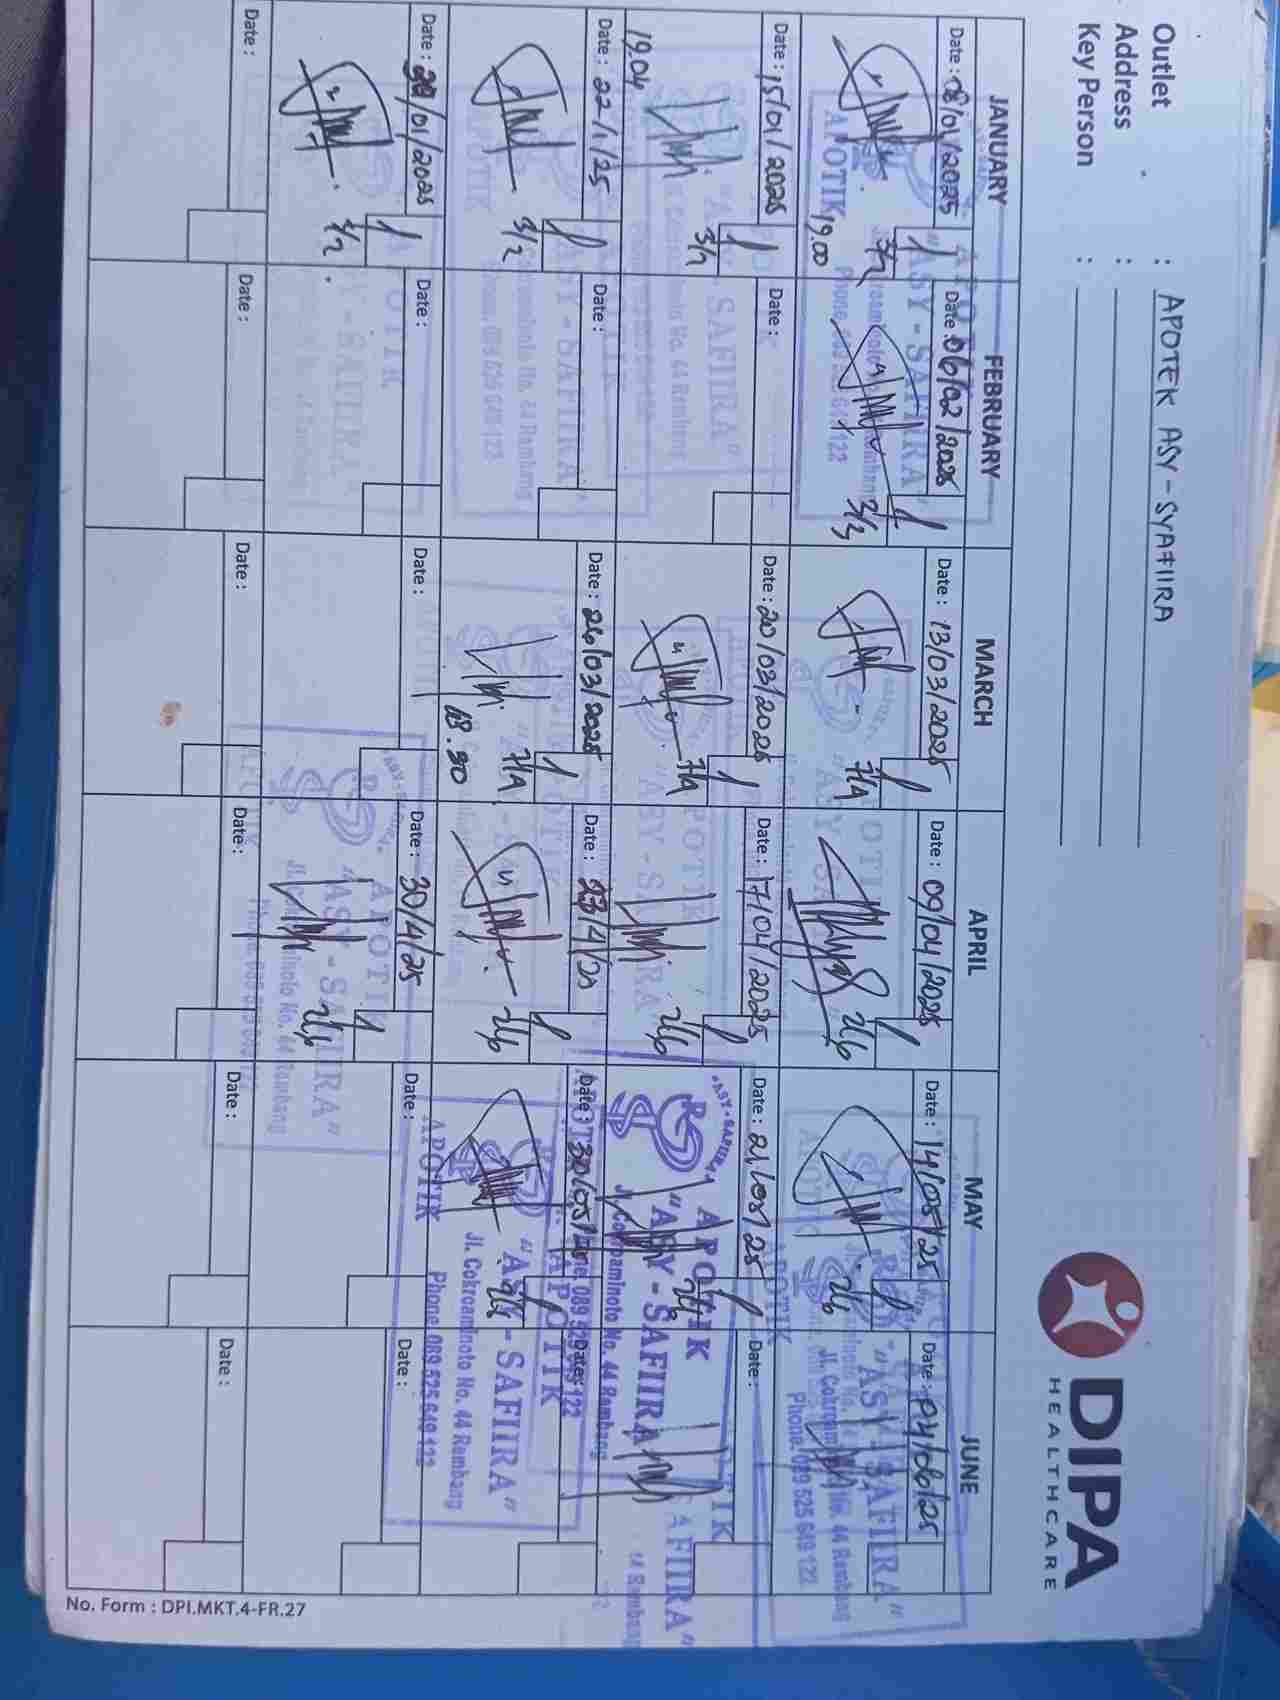 Outlet : APOTEK ASY-SYAFIIRA
Address :
Key Person :
DIPA
HEALTHCARE
JANUARY FEBRUARY MARCH APRIL MAY JUNE
Date : 08/01/2025 Date : 06/02/2025 Date : 13/03/2025 Date : 09/04/2025 Date : 14/05/25 Date : 04/06/25
3/3 7/4 2/6 2/6
19.00
Date : 15/01/2025 Date : Date : 20/03/2025 Date : 17/04/2025 Date : 21/05/25 Date :
3/2 7/4 2/6
19.04
Date : 22/1/25 Date : Date : 26/03/2025 Date : 23/4/25 Date : 30/05/ Date :
3/2 7/4 2/6
18.30
Date : 01/2025 Date : Date : Date : 30/4/25 Date : Date :
3/2 2/6
Date : Date : Date : Date : Date : Date :
"ASY-SAFIIRA"
APOTIK
"ASY-SAFIIRA"
Jl. Cokroaminoto No. 44 Rembang
Phone. 089 525 649 122
No. Form : DPI.MKT.4-FR.27